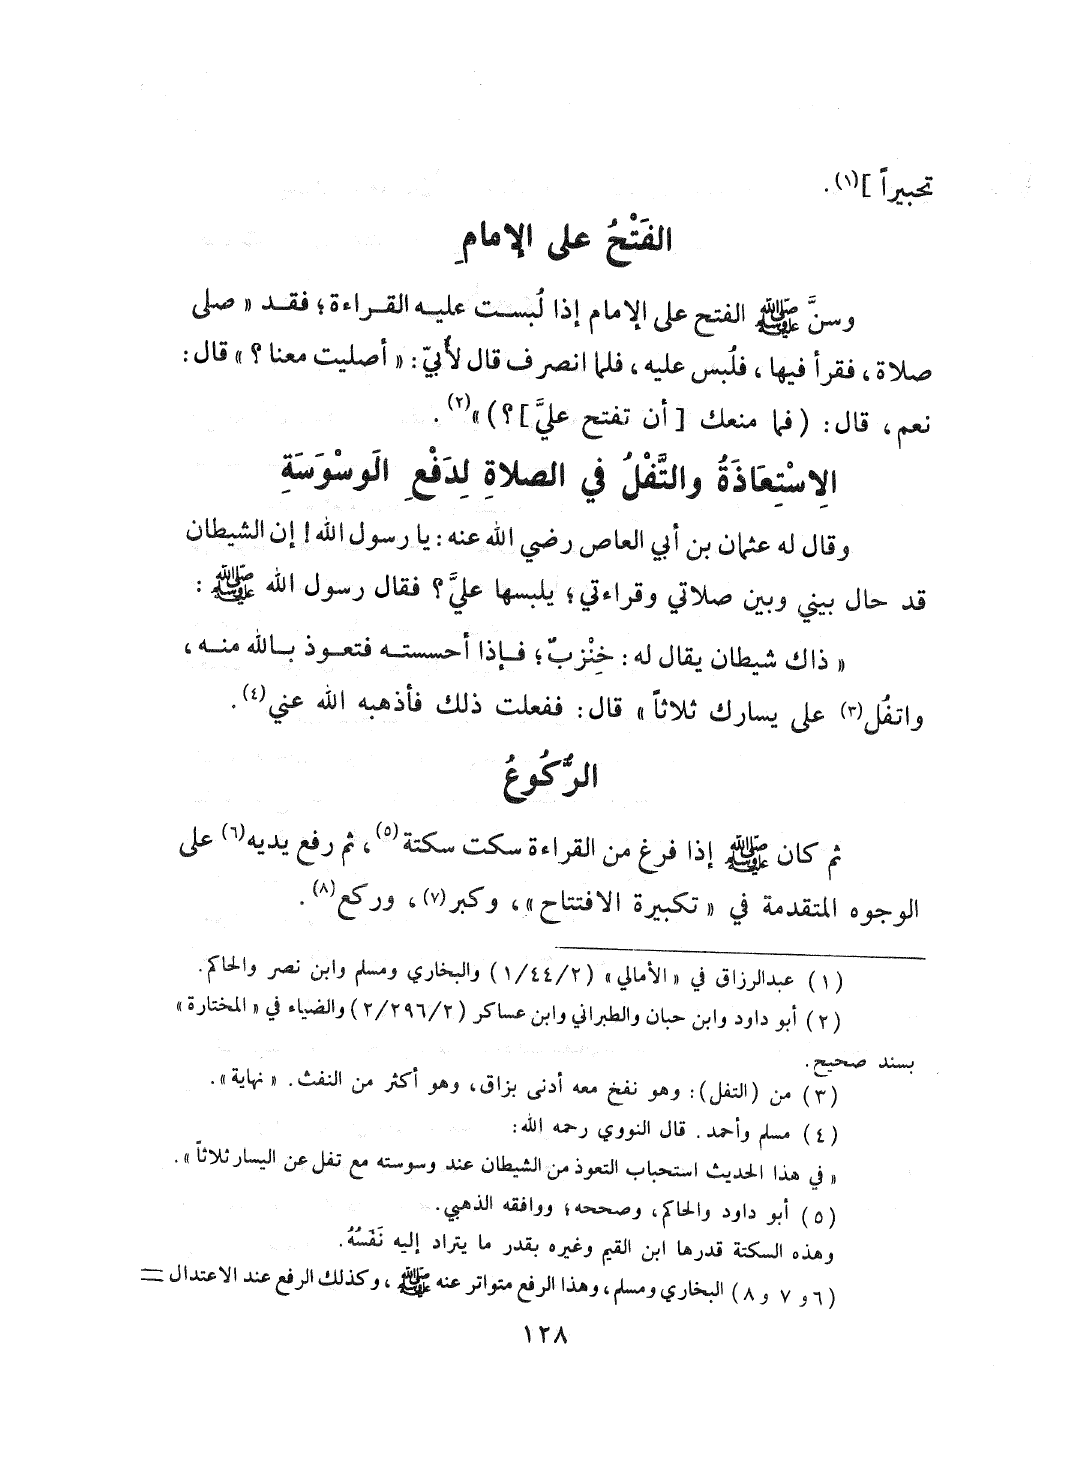 تحبيراً ](١).
الفَتْحُ على الإمامِ
وسنَّ ﷺ الفتح على الإمام إذا لُبست عليه القراءة؛ فقد « صلى
صلاة، فقرأ فيها، فلُبس عليه، فلما انصرف قال لأُبيّ: « أصليت معنا ؟ » قال:
نعم، قال: ( فما منعك [ أن تفتح عليَّ ] ؟ ) »(٢).
الِاسْتِعَاذَةُ والتَّفْلُ في الصلاةِ لِدَفْعِ الَوسْوَسَةِ
وقال له عثمان بن أبي العاص رضي الله عنه: يا رسول الله! إن الشيطان
قد حال بيني وبين صلاتي وقراءتي؛ يلبسها عليَّ ؟ فقال رسول الله ﷺ :
« ذاك شيطان يقال له: خِنْزبٌ؛ فإذا أحسسته فتعوذ بالله منه،
واتفُل(٣) على يسارك ثلاثاً » قال: ففعلت ذلك فأذهبه الله عني(٤).
الرُّكُوعُ
ثم كان ﷺ إذا فرغ من القراءة سكت سكتة(٥)، ثم رفع يديه(٦) على
الوجوه المتقدمة في « تكبيرة الافتتاح »، وكبر(٧)، وركع(٨).
(١) عبدالرزاق في « الأمالي » (١/٤٤/٢) والبخاري ومسلم وابن نصر والحاكم.
(٢) أبو داود وابن حبان والطبراني وابن عساكر (٢/٢٩٦/٢) والضياء في « المختارة »
بسند صحيح.
(٣) من (التفل): وهو نفخ معه أدنى بزاق، وهو أكثر من النفث. « نهاية ».
(٤) مسلم وأحمد. قال النووي رحمه الله:
« في هذا الحديث استحباب التعوذ من الشيطان عند وسوسته مع تفل عن اليسار ثلاثاً ».
(٥) أبو داود والحاكم، وصححه؛ ووافقه الذهبي.
وهذه السكتة قدرها ابن القيم وغيره بقدر ما يتراد إليه نَفَسُهُ.
(٦ و ٧ و ٨) البخاري ومسلم، وهذا الرفع متواتر عنه ﷺ، وكذلك الرفع عند الاعتدال =
١٢٨